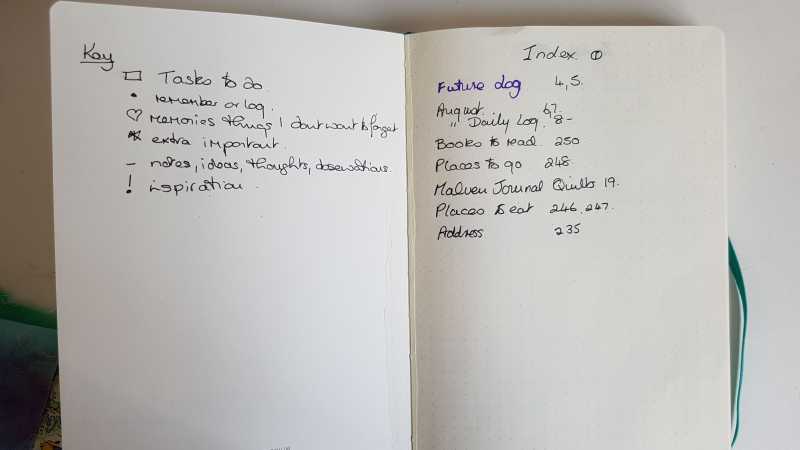 Key
□ Tasks to do.
• remember or log.
♡ Memories things I dont want to forget
* extra important.
– notes, ideas, thoughts, observations.
! inspiration.
Index ①
Future Log 4,5.
August. 6,7.
" Daily Log. 8-
Books to read. 250
Places to go 248.
Malvern Journal Quilts 19.
Places to eat 246,247.
Address 235